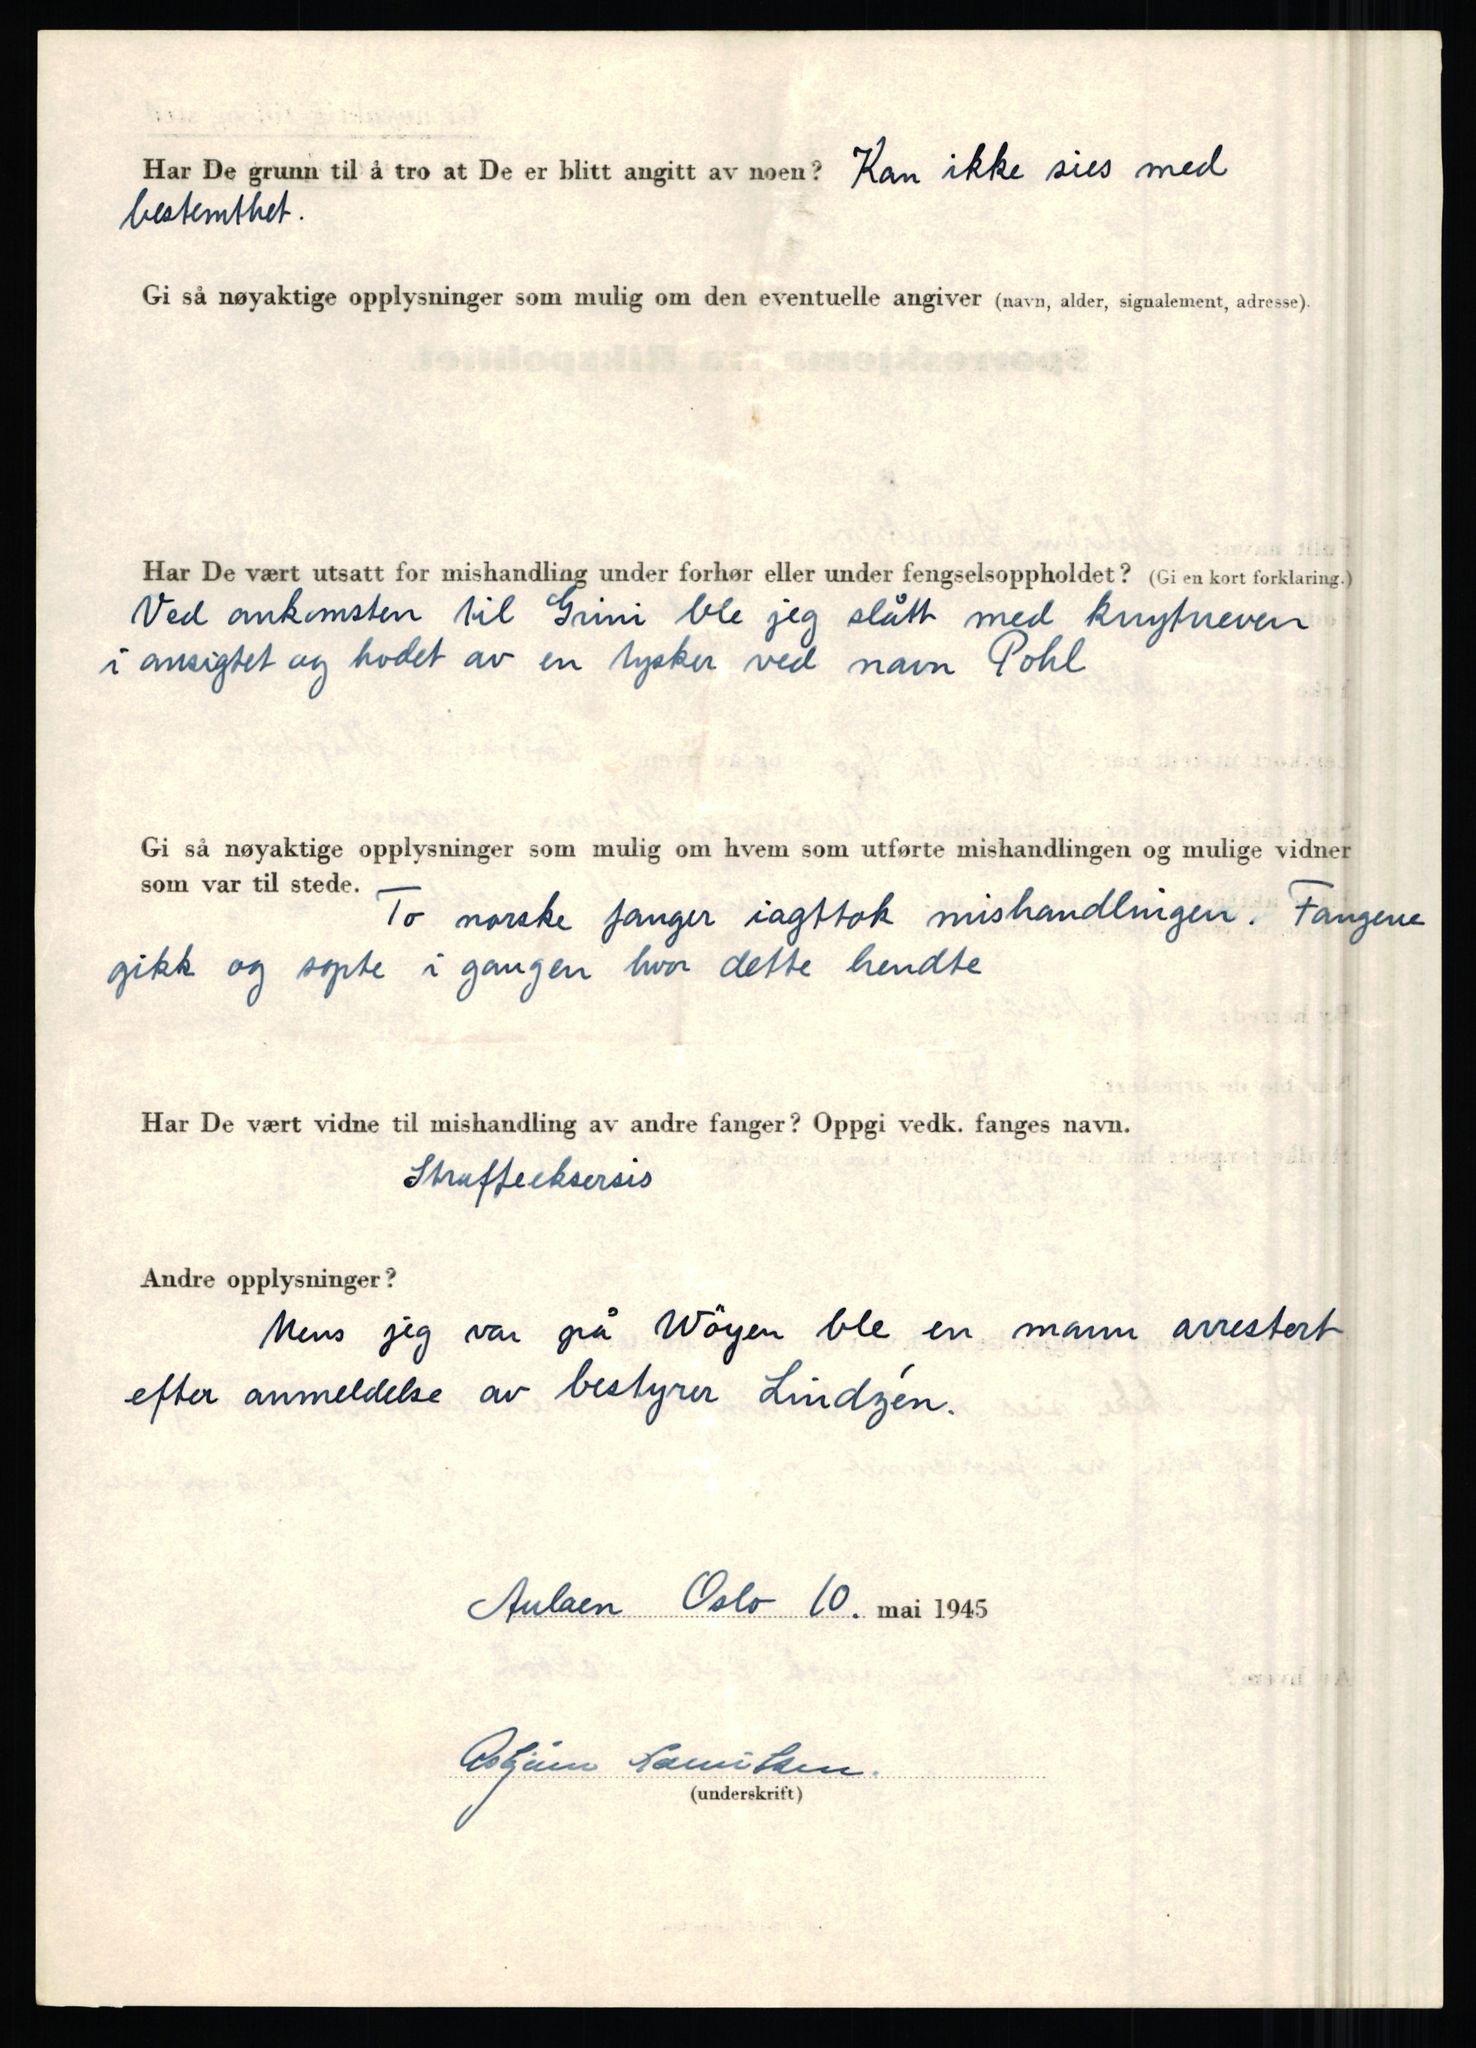 Har De grunn til å tro at De er blitt angitt av noen? Kan ikke sies med
bestemthet.
Gi så nøyaktige opplysninger som mulig om den eventuelle angiver (navn, alder, signalement, adresse).
Har De vært utsatt for mishandling under forhør eller under fengselsoppholdet? (Gi en kort forklaring.)
Ved ankomsten til Grini ble jeg slått med knytneven
i ansigtet og hodet av en tysker ved navn Pohl
Gi så nøyaktige opplysninger som mulig om hvem som utførte mishandlingen og mulige vidner
som var til stede.
To norske fanger iagttok mishandlingen. Fangene
gikk og sopte i gangen hvor dette hendte
Har De vært vidne til mishandling av andre fanger? Oppgi vedk. fanges navn.
Straffeeksersis
Andre opplysninger?
Mens jeg var på Wöyen ble en mann arrestert
efter anmeldelse av bestyrer Lindzén.
Aulaen Oslo 10. mai 1945
(underskrift)